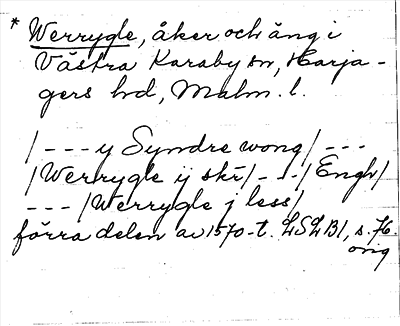 * Werrygle, åker och äng i
Västra Karaby sn, Harja-
gers hd, Malm. l.
/--- y Syndre wong/ ---
/Werrygle ij skr/ ---/Engh/
--- /Werrygle j less/
förra delen av 1570-t. LSLB1, s. 76.
orig